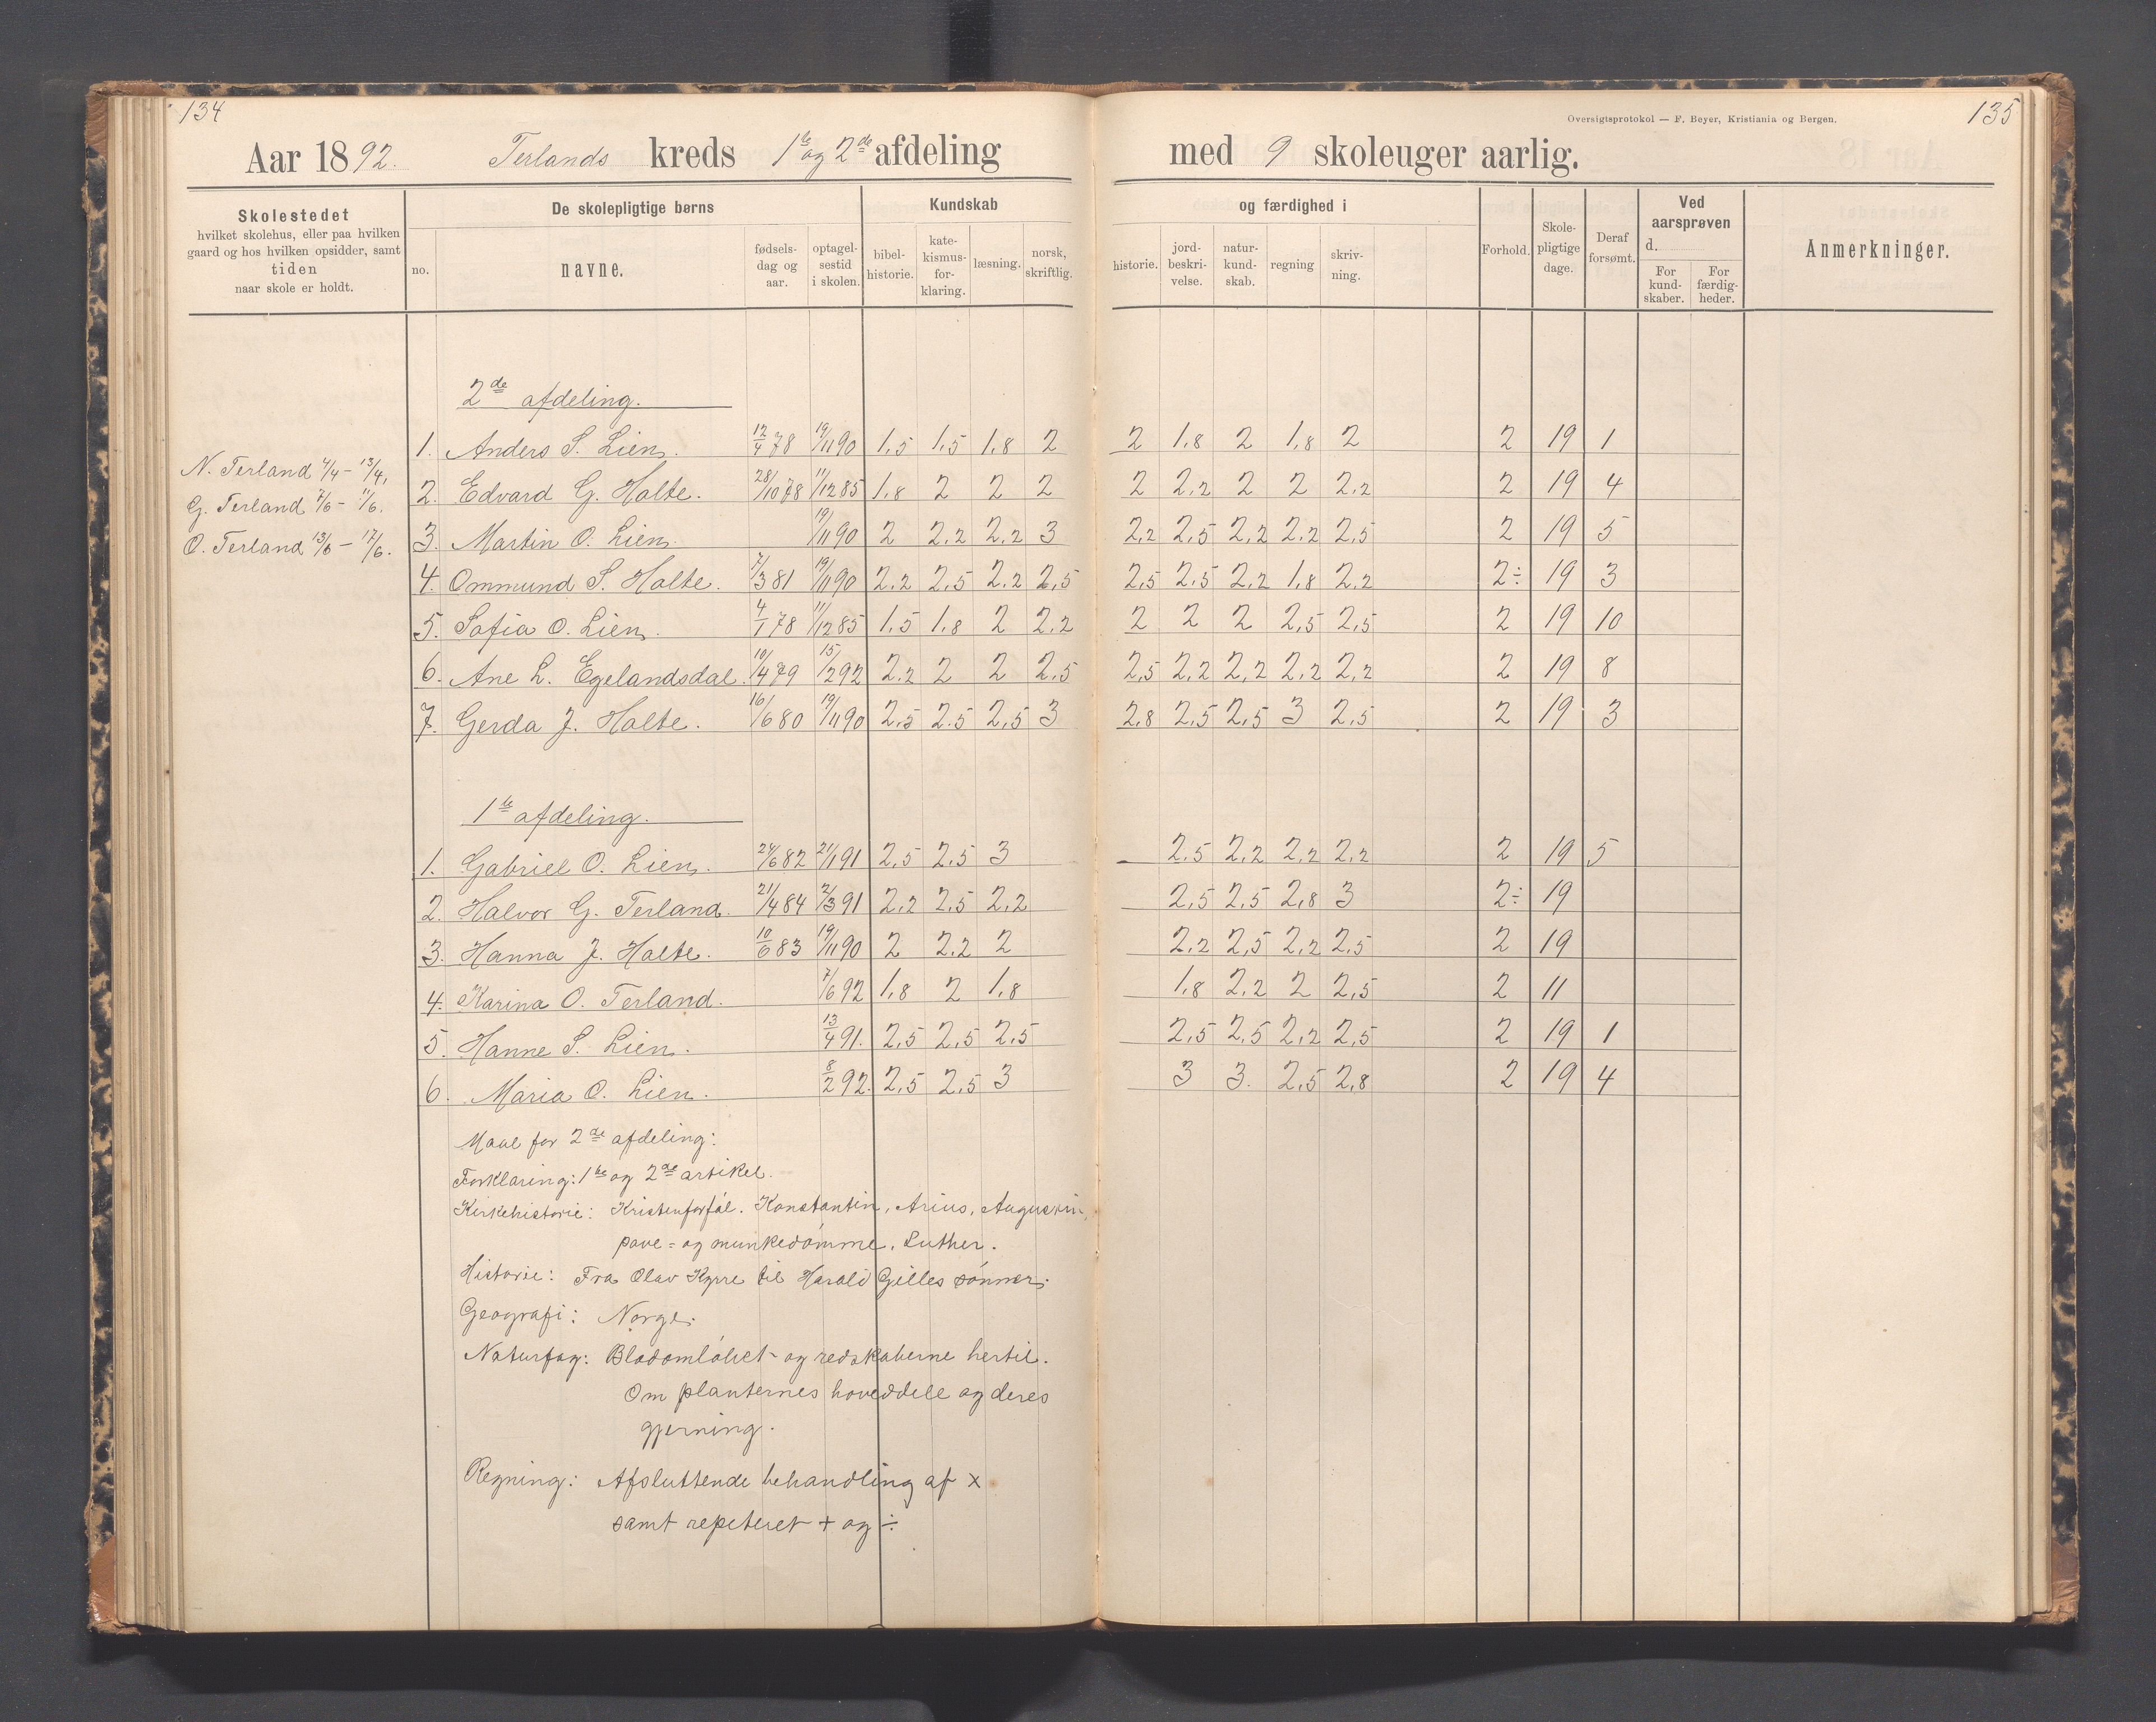 134
Aar 1892. Terlands kreds 1ste og 2de afdeling
Skolestedet
hvilket skolehus, eller paa hvilken
gaard og hos hvilken opsidder, samt
tiden
naar skole er holdt.
De skolepligtige børns
no.
navne.
fødsels-
dag og
aar.
optagel-
sestid
i skolen.
Kundskab
bibel-
historie.
kate-
kismus-
for-
klaring.
læsning.
norsk,
skriftlig.
2de afdeling.
1. Anders S. Lien. 12/4 78 19/11 90 1,5 1,5 1,8 2
2. Edvard G. Halte. 28/10 78 11/12 85 1,8 2 2 2
3. Martin O. Lien. 19/11 90 2 2,2 2,2 3
4. Ommund S. Halte. 7/3 81 19/11 90 2,2 2,5 2,2 2,5
5. Sofia O. Lien. 4/1 78 11/12 85 1,5 1,8 2 2,2
6. Ane L. Egelandsdal. 10/4 79 15/2 92 2,2 2 2 2,5
7. Gerda J. Halte. 16/6 80 19/11 90 2,5 2,5 2,5 3
N. Terland 4/4 – 13/4.
G. Terland 7/6 – 11/6.
O. Terland 13/6 – 17/6.
1ste afdeling.
1. Gabriel O. Lien. 24/6 82 21/1 91 2,5 2,5 3
2. Halvor G. Terland. 21/4 84 2/3 91 2,2 2,5 2,2
3. Hanna J. Halte. 10/6 83 19/11 90 2 2,2 2
4. Karina O. Terland. 7/6 92 1,8 2 1,8
5. Hanne S. Lien. 13/4 91. 2,5 2,5 2,5
6. Maria O. Lien. 8/2 92. 2,5 2,5 3
Maal for 2de afdeling:
Forklaring: 1ste og 2de artikel.
Kirkehistorie: Kristenforføl. Konstantin, Arius, Augustin,
pave- og munkedømme. Luther.
Historie: Fra Olav Kyrre til Harald Gilles sønner.
Geografi: Norge.
Naturfag: Blodomløbet og redskaberne hertil.
Om planternes hoveddele og deres
gjerning.
Regning: Afsluttende behandling af ×
samt repeteret + og ÷
Oversigtsprotokol — F. Beyer, Kristiania og Bergen.
135
med 9 skoleuger aarlig.
og færdighed i
historie.
jord-
beskri-
velse.
natur-
kund-
skab.
regning
skriv-
ning.
Forhold.
Skole-
pligtige
dage.
Deraf
forsømt.
Ved
aarsprøven
d.
For
kund-
skaber.
For
færdig-
heder.
Anmerkninger.
2 1,8 2 1,8 2 2 19 1
2 2,2 2 2 2,2 2 19 4
2,2 2,5 2,2 2,2 2,5 2 19 5
2,5 2,5 2,2 1,8 2,2 2÷ 19 3
2 2 2 2,5 2,5 2 19 10
2,5 2,2 2,2 2,2 2,2 2 19 8
2,8 2,5 2,5 3 2,5 2 19 3
2,5 2,2 2,2 2,2 2 19 5
2,5 2,5 2,8 3 2÷ 19
2,2 2,5 2,2 2,5 2 19
1,8 2,2 2 2,5 2 11
2,5 2,5 2,2 2,5 2 19 1
3 3. 2,5 2,8 2 19 4